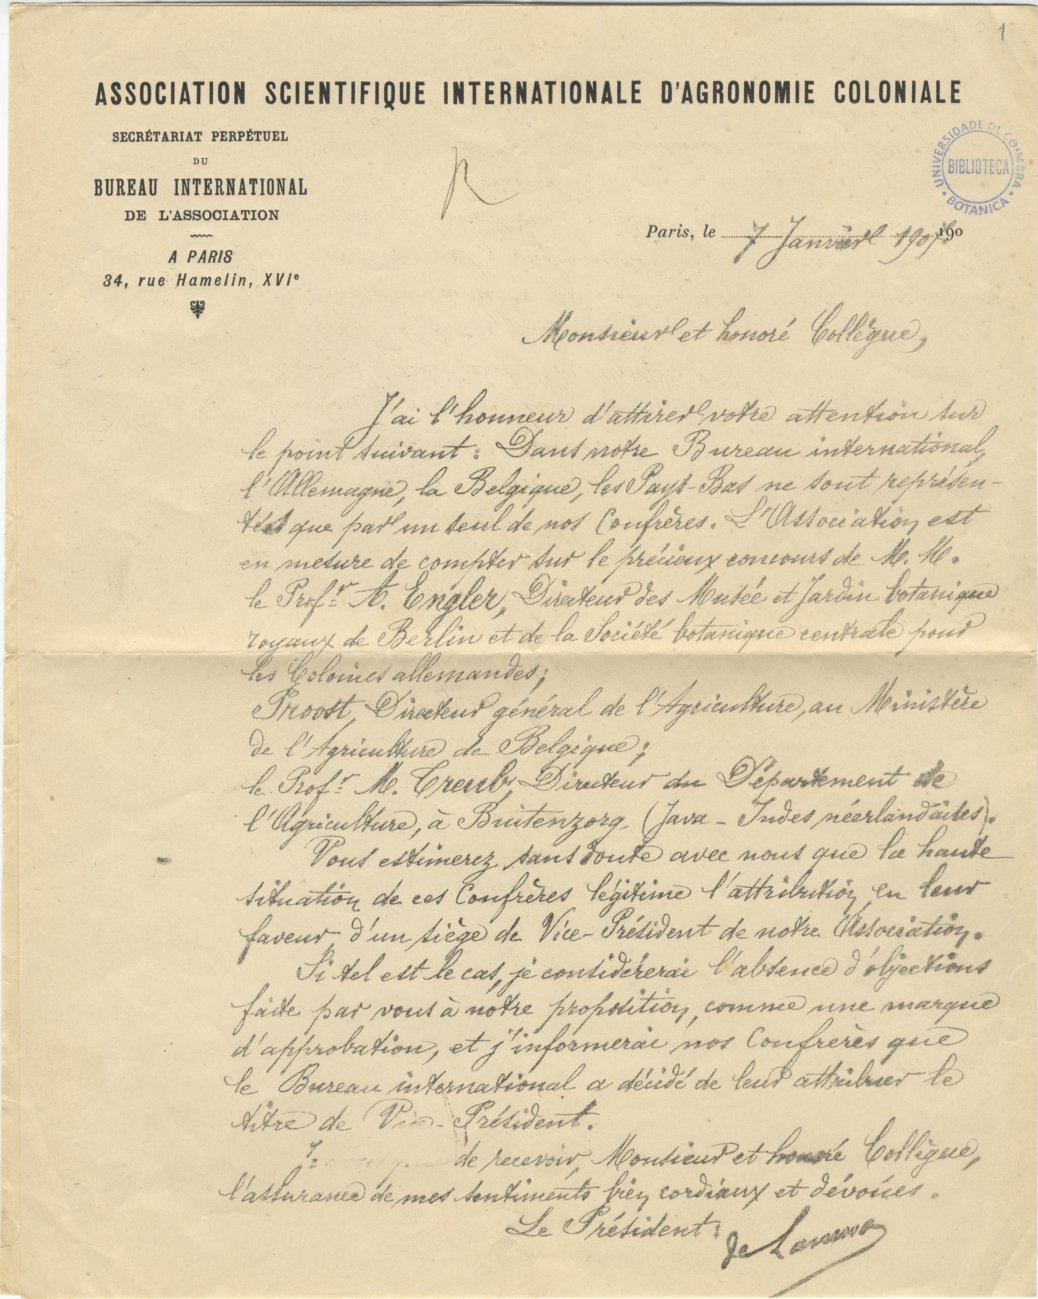 1
ASSOCIATION SCIENTIFIQUE INTERNATIONALE D'AGRONOMIE COLONIALE
SECRÉTARIAT PERPÉTUEL
DU
BUREAU INTERNATIONAL
DE L'ASSOCIATION
A PARIS
34, rue Hamelin, XVIe
UNIVERSIDADE DE COIMBRA
BIBLIOTECA
BOTANICA
R
Paris, le 7 Janvier 1907. 190
Monsieur et honoré Collègue,
J'ai l'honneur d'attirer votre attention sur
le point suivant : Dans notre Bureau international,
l'Allemagne, la Belgique, les Pays-Bas ne sont représen-
tés que par un seul de nos Confrères. L'Association est
en mesure de compter sur le précieux concours de M. M.
le Profr. A. Engler, Directeur des Musée et Jardin botanique
royaux de Berlin et de la Société botanique centrale pour
les Colonies allemandes;
Proost, Directeur général de l'Agriculture, au Ministère
de l'Agriculture de Belgique;
le Profr. M. Treub, Directeur du Département de
l'Agriculture, à Buitenzorg (Java - Indes néerlandaises).
Vous estimerez sans doute avec nous que la haute
situation de ces Confrères légitime l'attribution en leur
faveur d'un siège de Vice-Président de notre Association.
Si tel est le cas, je considérerai l'absence d'objections
faite par vous à notre proposition, comme une marque
d'approbation, et j'informerai nos Confrères que
le Bureau international a décidé de leur attribuer le
titre de Vice-Président.
de recevoir, Monsieur et honoré Collègue,
l'assurance de mes sentiments bien cordiaux et dévoués.
Le Président :